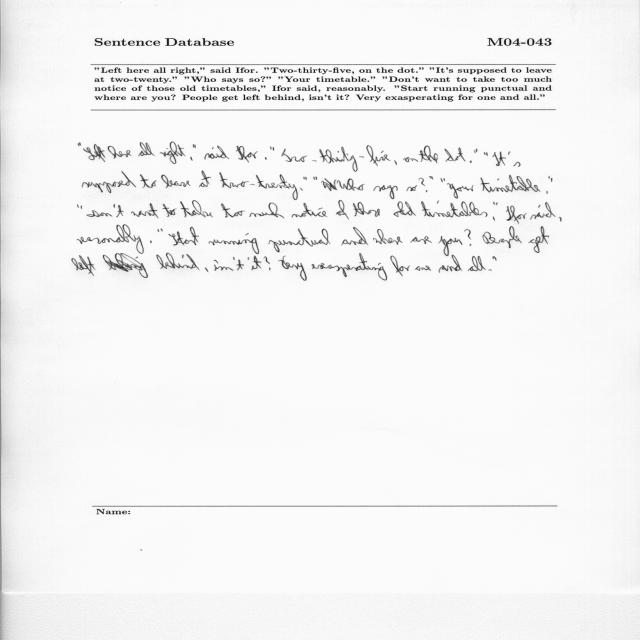 Sentence Database M04-043
"Left here all right," said Ifor. "Two-thirty-five, on the dot." "It's supposed to leave
at two-twenty." "Who says so?" "Your timetable." "Don't want to take too much
notice of those old timetables," Ifor said, reasonably. "Start running punctual and
where are you? People get left behind, isn't it? Very exasperating for one and all."
"Left here all right," said Ifor. "Two-thirty-five, on the dot." "It's
supposed to leave at two-twenty." "Who says so?" "Your timetable."
"Don't want to take too much notice of those old timetables," Ifor said,
reasonably. "Start running punctual and where are you? People get
left behind, isn't it? Very exasperating for one and all."
Name: